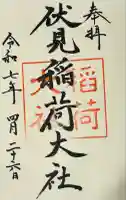 奉拝
伏見稲荷大社
令和七年 四月二十六日